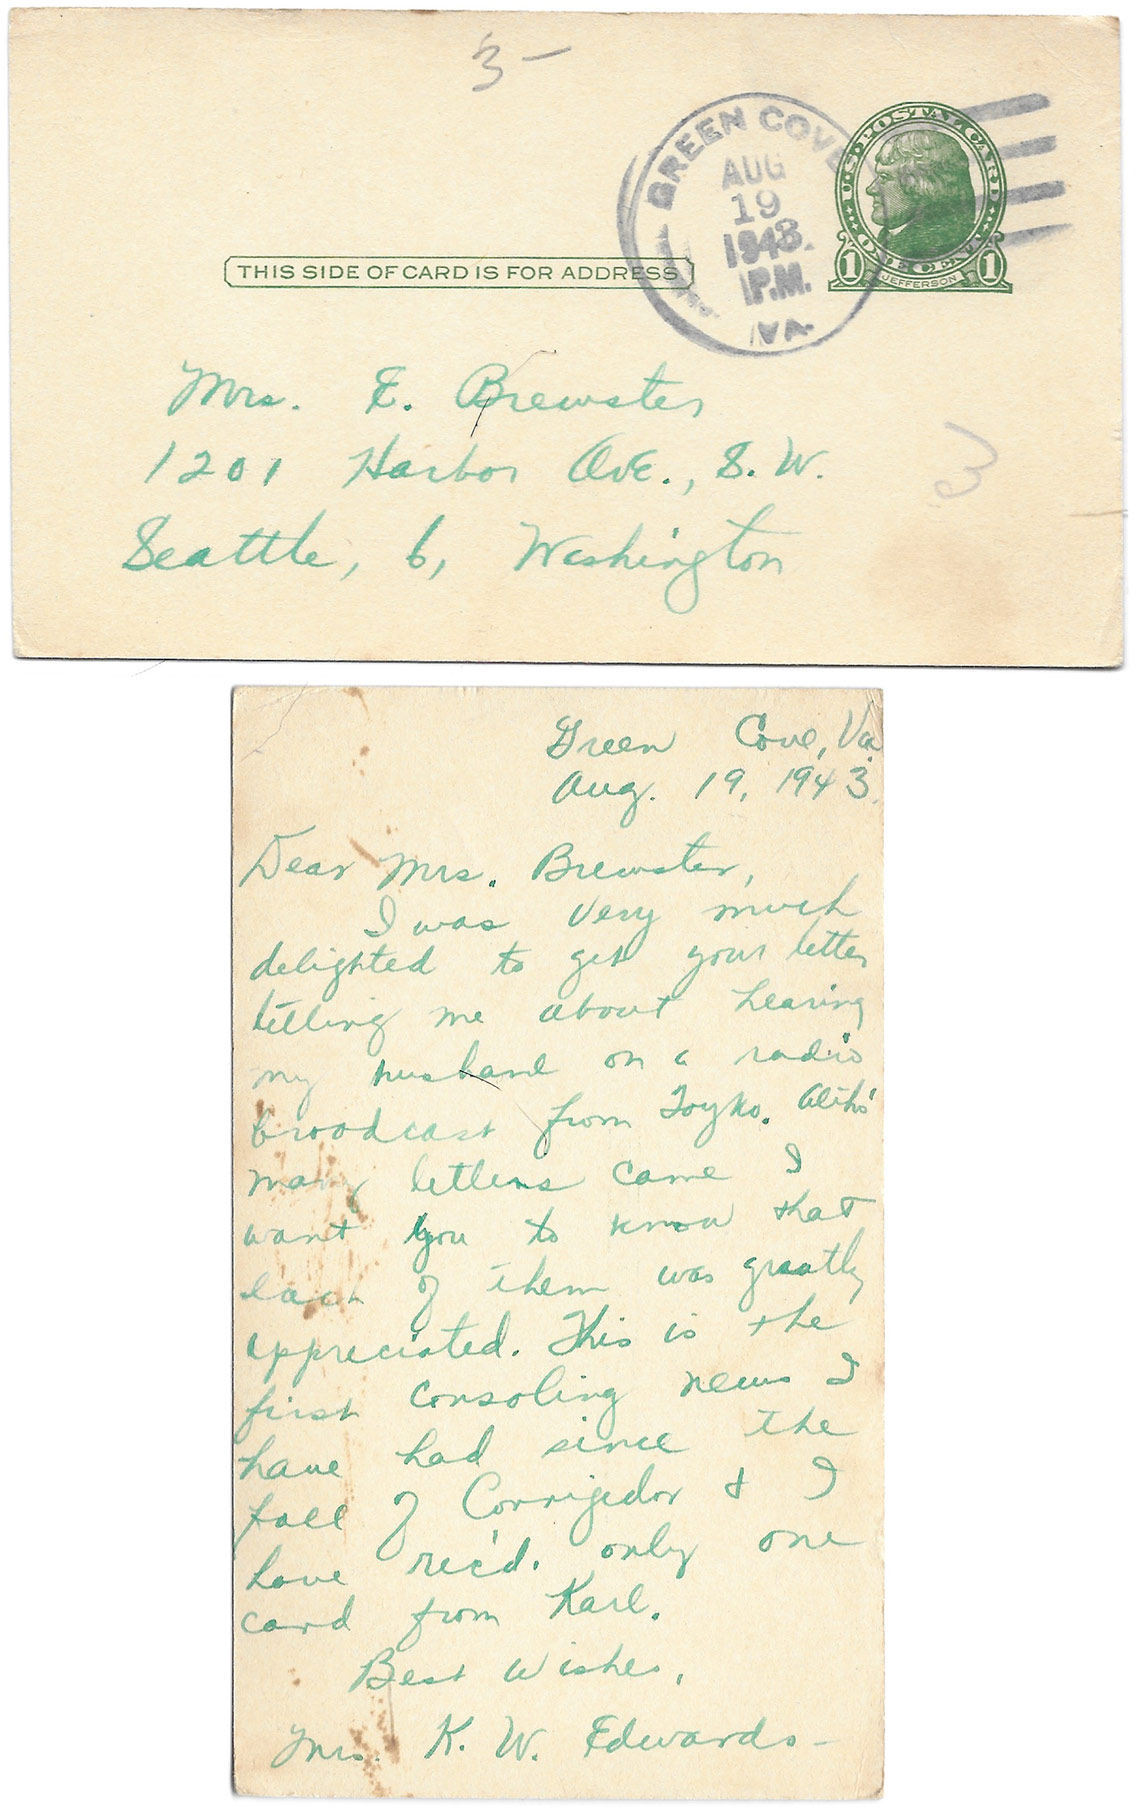 3 –
GREEN COVE
AUG
19
1943
P.M.
VA.
U.S. POSTAL CARD
ONE CENT
1 JEFFERSON 1
THIS SIDE OF CARD IS FOR ADDRESS
Mrs. E. Brewster
1201 Harbor Ave., S.W.
Seattle, 6, Washington
3
Green Cove, Va.
Aug. 19, 1943.
Dear Mrs. Brewster,
I was very much
delighted to get your letter
telling me about hearing
my husband on a radio
broadcast from Toyko. Altho'
many letters came I
want you to know that
each of them was greatly
appreciated. This is the
first consoling news I
have had since the
fall of Corrigedor & I
have rec'd. only one
card from Karl.
Best Wishes,
Mrs. K. W. Edwards –